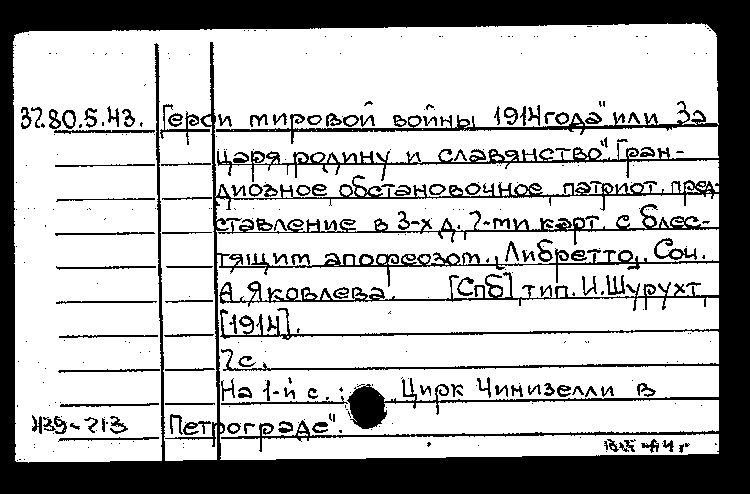 37.80.5.43. Герои мировой войны 1914 года" или "За
царя, родину и славянство". Гран-
диозное, обстановочное, патриот. пред-
ставление в 3-х д., 7-ми карт. с блес-
тящим апофеозом. [Либретто]. Соч.
А. Яковлева. [Спб], тип. И. Шурухт,
[1914].
7 с.
На 1-й с.: "Цирк Чинизелли в
Петрограде".